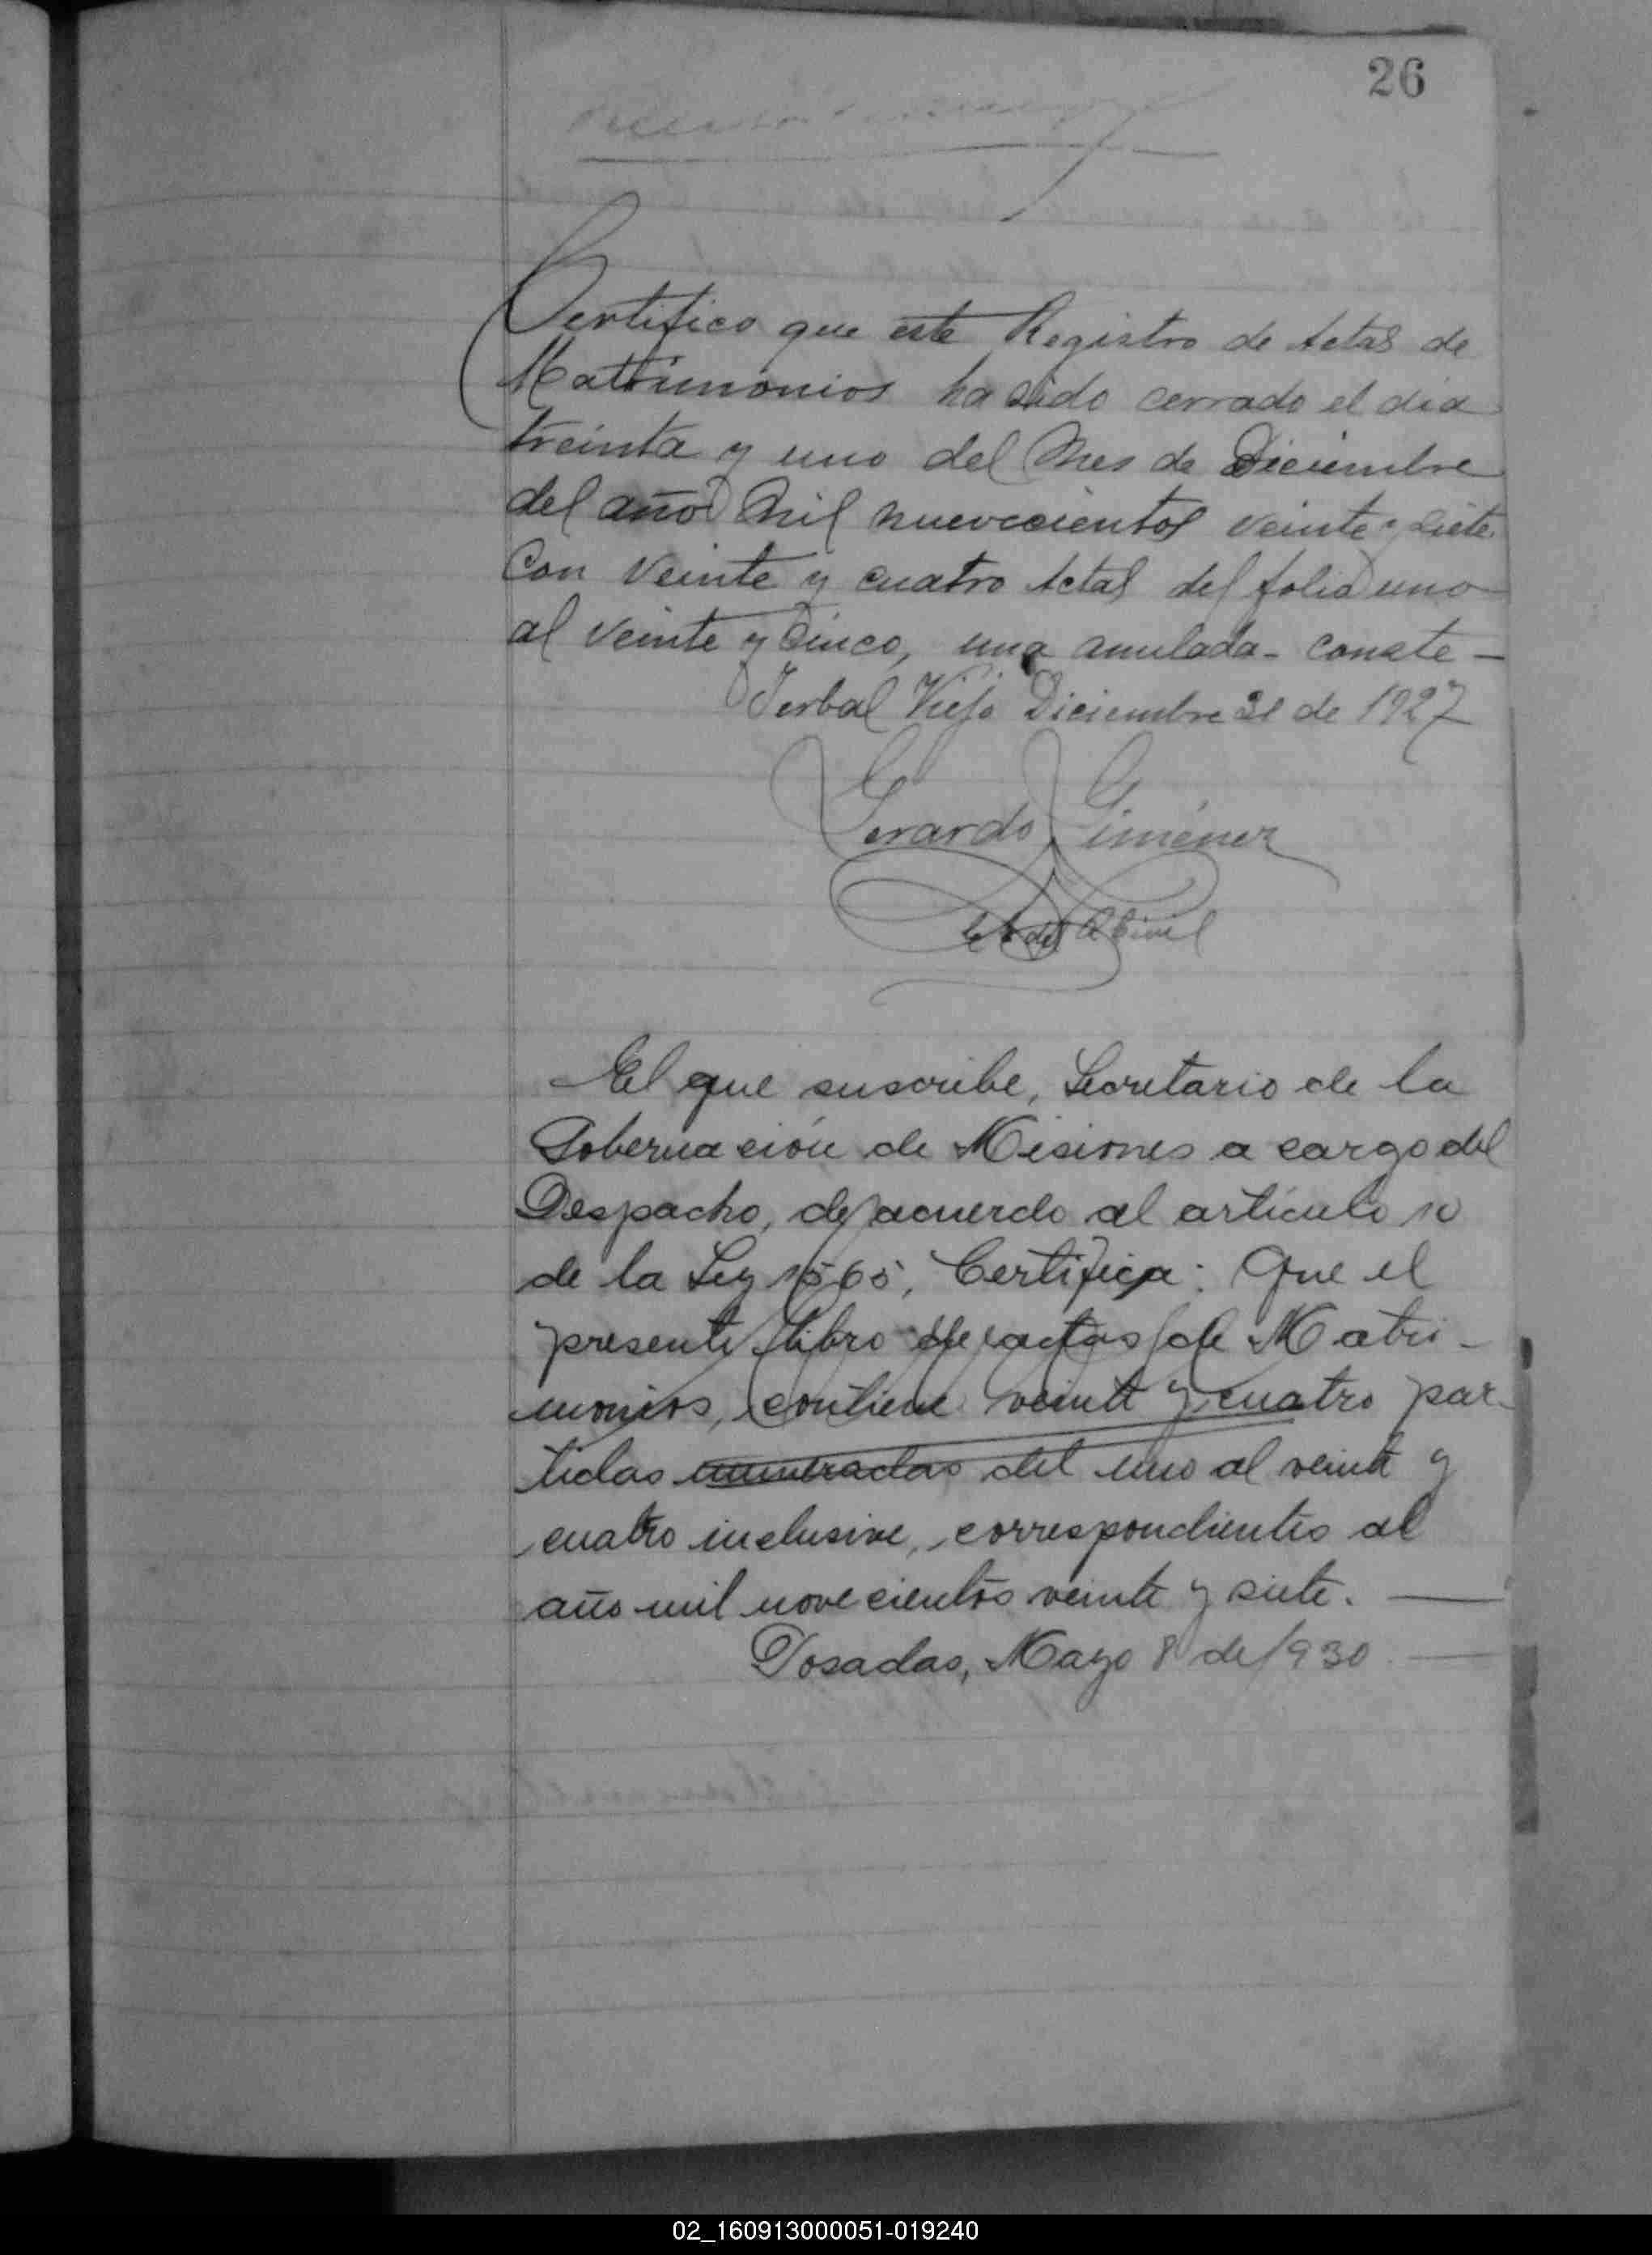 26
Certifico que este Registro de Actas de
Matrimonios ha sido cerrado el dia
treinta y uno del Mes de Diciembre
del año Mil nuevecientos veinte y siete
Con veinte y cuatro Actas del folio uno
al veinte y Cinco, una anulada - conste -
Yerbal Viejo Diciembre 31 de 1927
Gerardo Giménez
del R Civil
El que suscribe, Secretario de la
Gobernación de Misiones a cargo del
Despacho, de acuerdo al artículo 10
de la Ley 1565, Certifica: Que el
presente libro de actas de Matri-
monios, contiene veinte y cuatro par-
tidas numeradas del uno al veinte y
cuatro inclusive, correspondientes al
año mil novecientos veinte y siete. —
Posadas, Mayo 8 de 1930. —
02_160913000051-019240